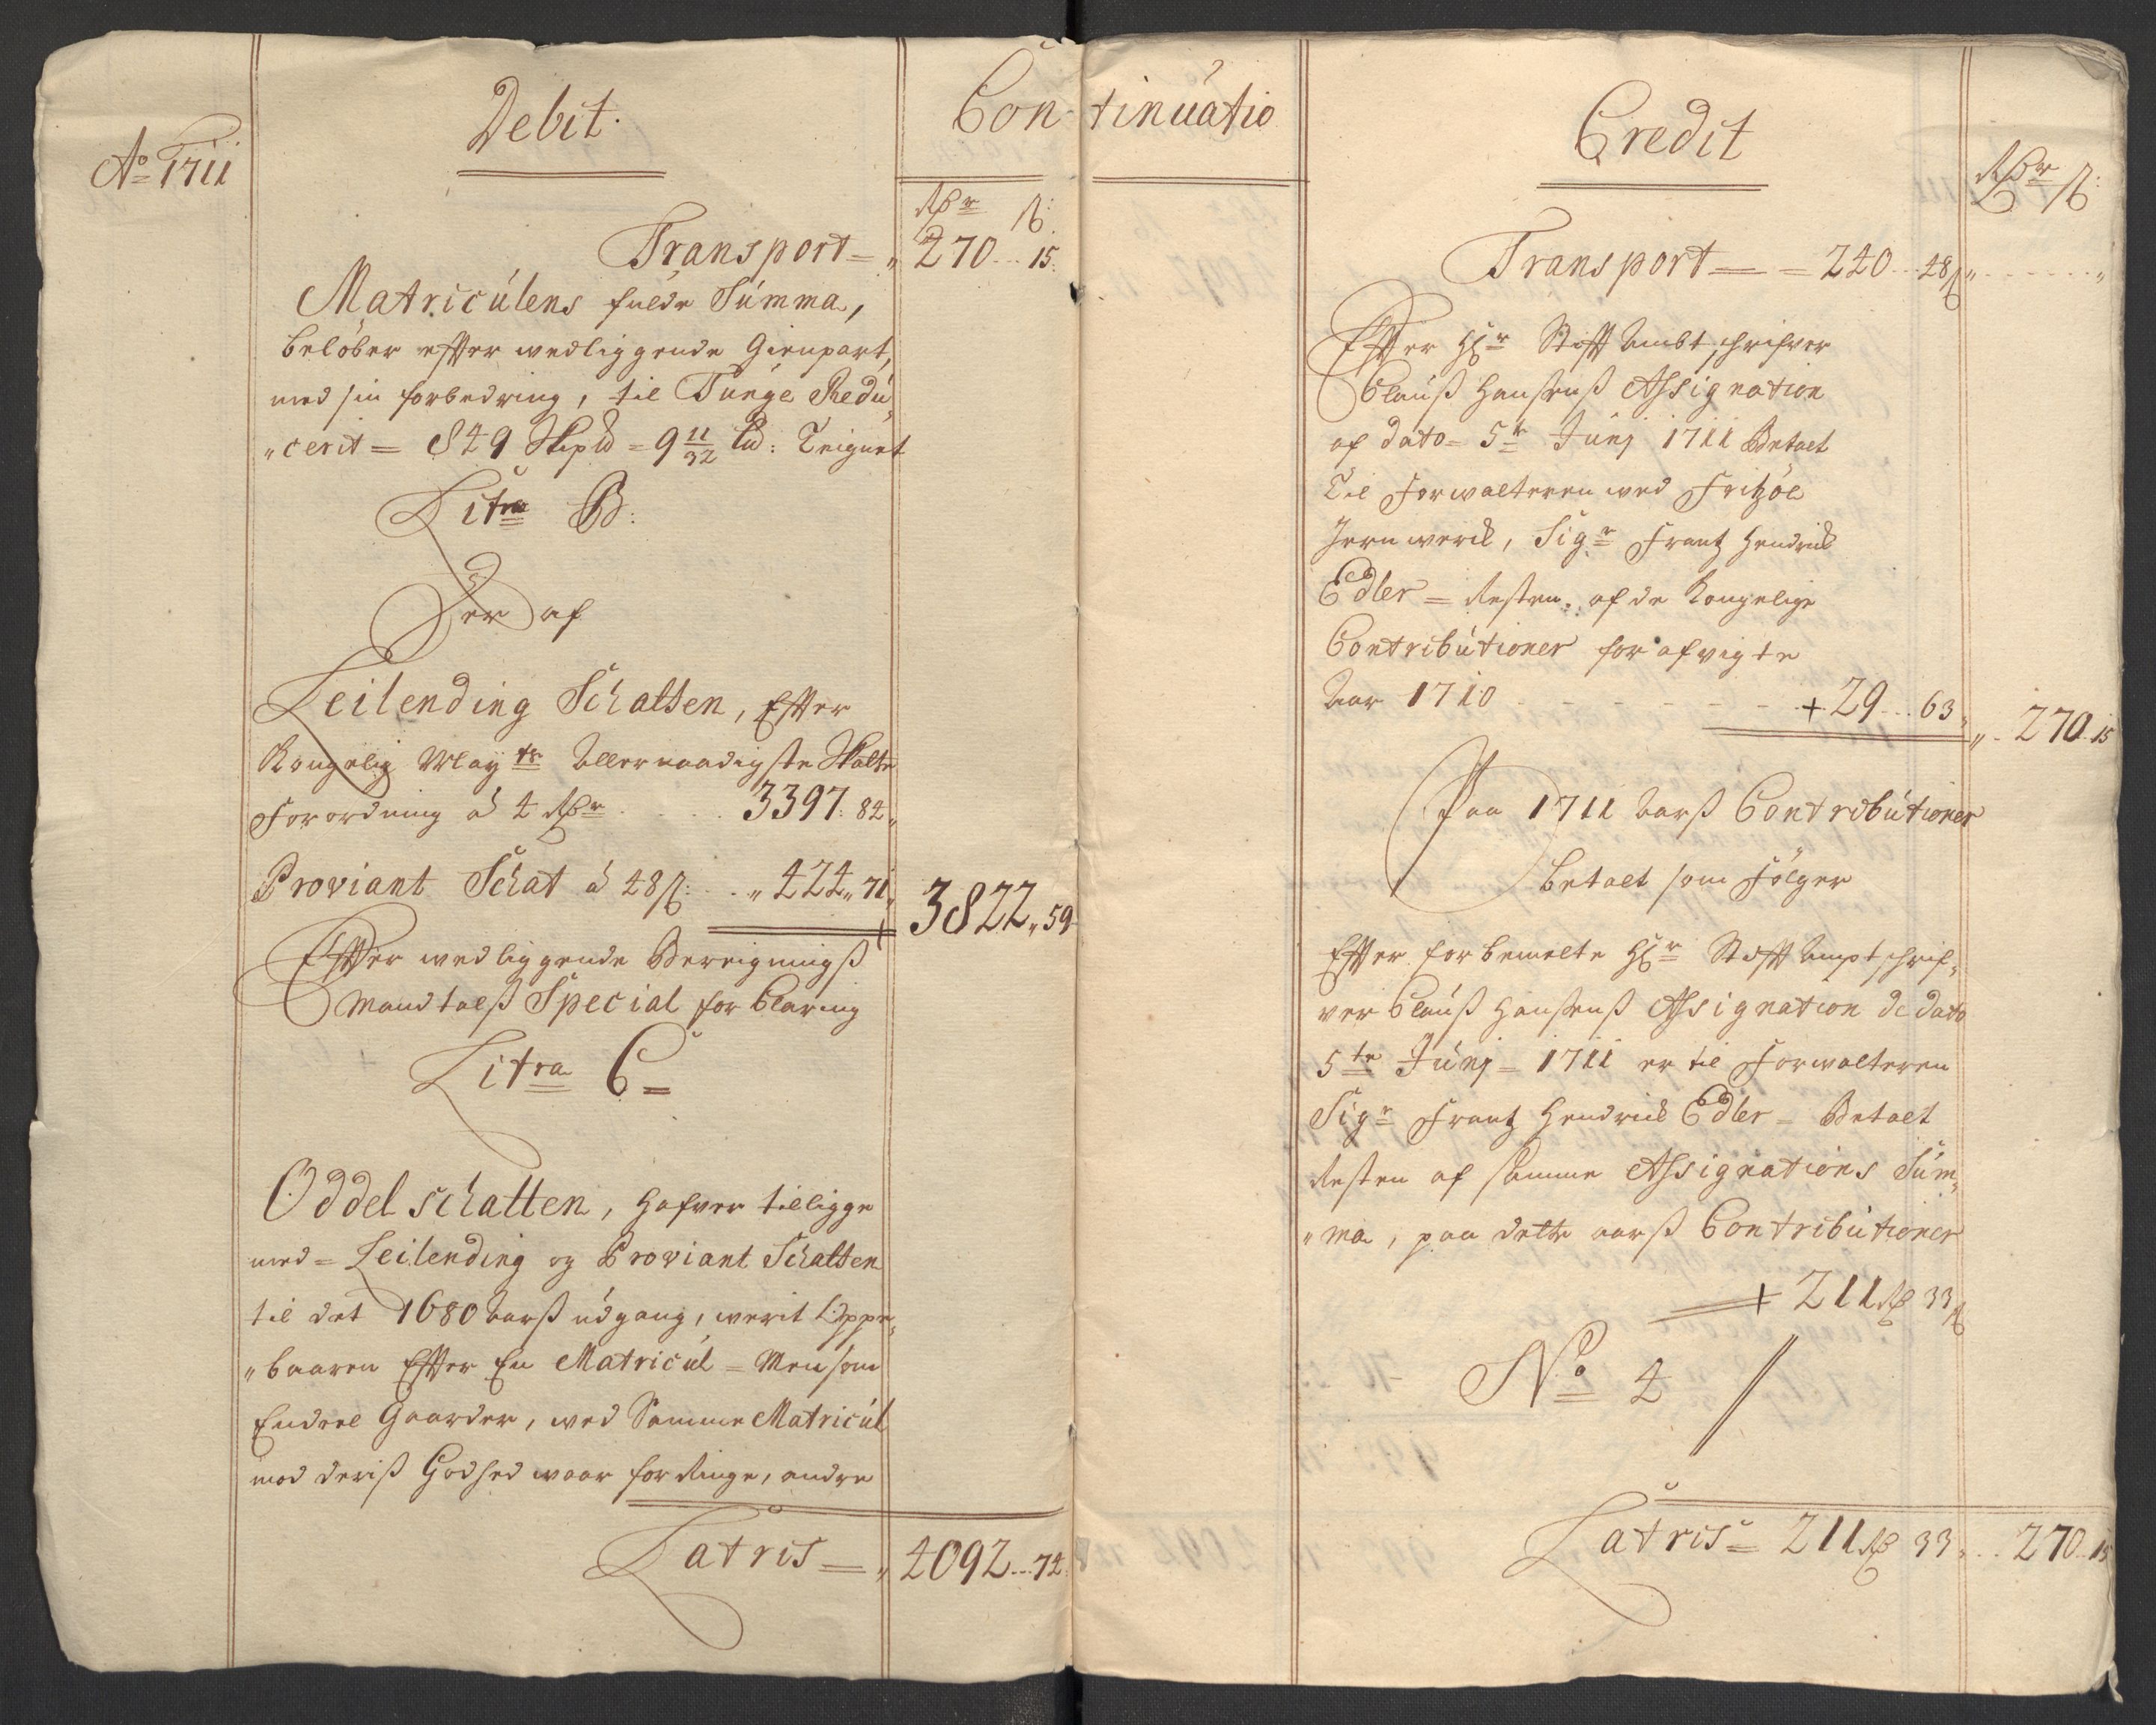 Debit
Continuatio
Credit
Ao 1711
Rdr ß:
Transport = 270 .. 15.
Matriculens fulde Summa,
beløber effter wedliggende Gienpart,
med sin forbedring, til Tunge Redu„
„cerit = 849 Skpd = 9 11/32 Ld: Teignet
Litra B:
Der af
Leilending Schatten, Effter
Kongelig Maytz Allernaadigste Skatte
Forordning à 4 Rdr . . . . 3397: 84„
Proviant Schat à 48ß: .. „ 424„ 71„
3822„ 59
Effter wedliggende Bereignings
Mandtalß Special for Claring
Litra C =
Oddel schatten, hafver tilligge
med = Leilending og Proviant Schatten
til det 1680 Aarß udgang, werit Oppe„
„baaren Effter En Matricul = Men som
Endeel Gaarder, wed Samme Matricul
mod deriß Godhed waar for Ringe, andre
Latris = „ 4092 ... 74
Rdr ß:
Transport = = 240 .. 48ß „ . . . . „
Effter Hr Stifft Ambt schrifver
Clauß Hanßenß Assignation
af dato = 5te Junj 1711 Betalt
Til Forwalteren wed Fritzøe
Jernwerck, Sigr Frantz Hendrick
Edler = Resten af de Kongelige
Contributioner for afvigte
Aar 1710 - - - - - + 29 ... 63„
„ . 270 .. 15
Paa 1711 Aarß Contributioner
betalt som følger
Effter forbemelte Hr Stifft Ampt schrif„
ver Clauß Hanßenß Assignation de dato
5te Junj = 1711 er til Forwalteren
Sigr Frantz Hendrick Edler = Betalt
Resten af samme Assignations Sum„
„ma, paa dette aarß Contributioner
+ 211 Rd 33ß
No 4
Latris = 211 Rd 33 „ .. 270 .. 15